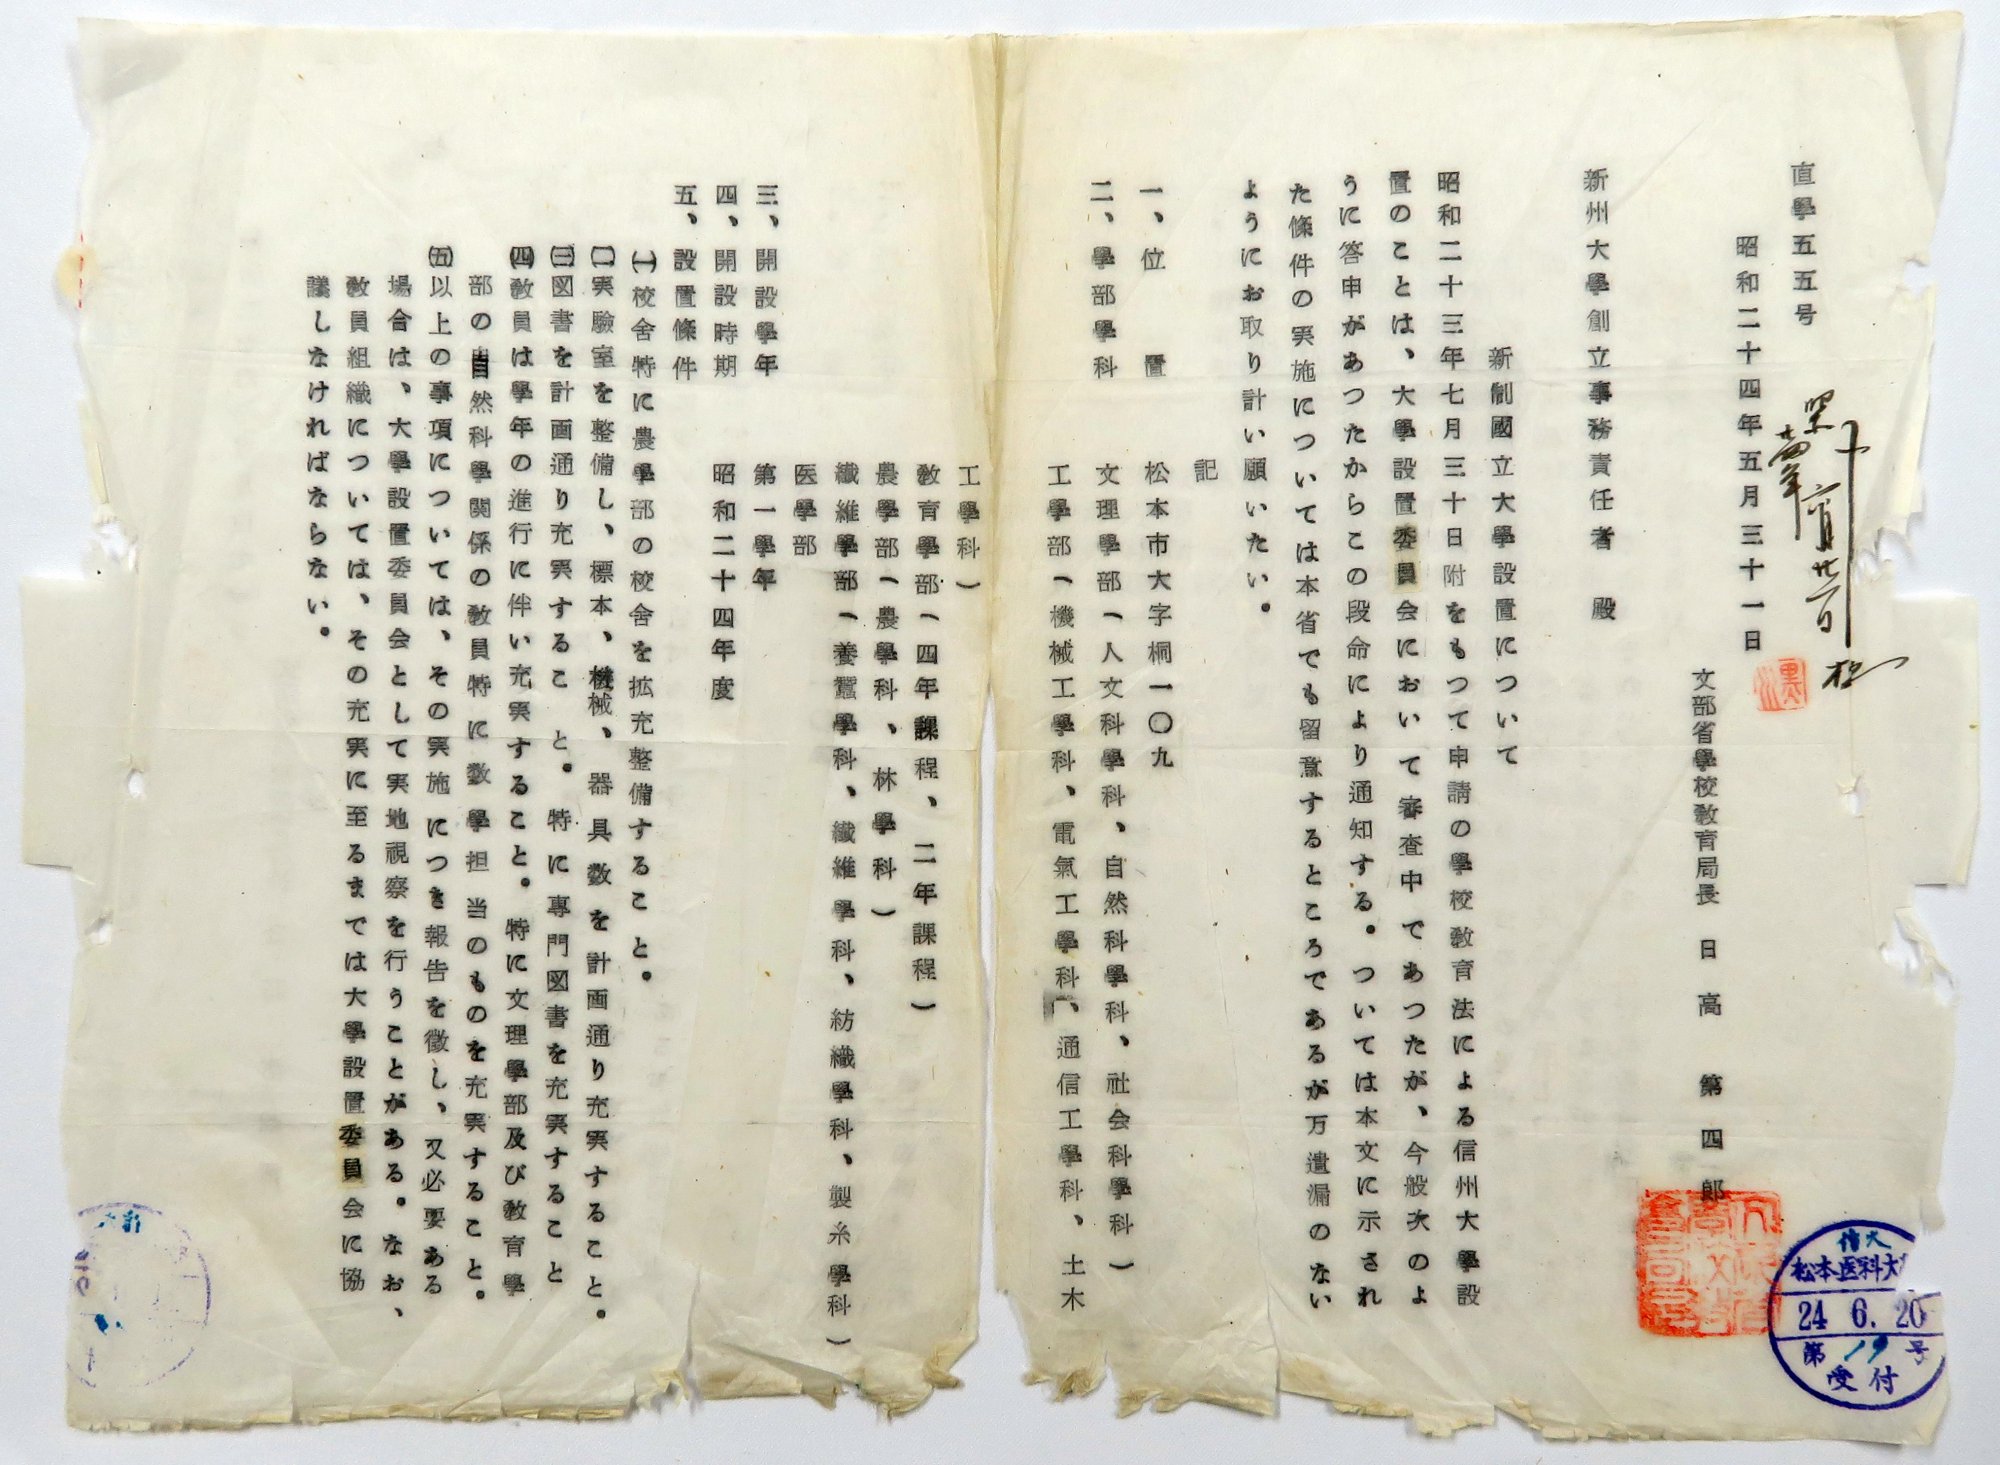 直學五五号
昭和二十四年五月三十一日
文部省學校教育局長 日高第四郎
新州大學創立事務責任者 殿
新制國立大學設置について
昭和二十三年七月三十日附をもつて申請の學校教育法による信州大學設
置のことは、大學設置委員会において審査中であつたが、今般次のよ
うに答申があつたからこの段命により通知する。ついては本文に示され
た條件の実施については本省でも留意するところであるが万遺漏のない
ようにお取り計い願いたい。
記
一、位置 松本市大字桐一〇九
二、學部學科 文理學部(人文科學科、自然科學科、社会科學科)
工學部(機械工學科、電氣工學科、通信工學科、土木
工學科)
教育學部(四年課程、二年課程)
農學部(農學科、林學科)
纖維學部(養蠶學科、纖維學科、紡織學科、製糸學科)
医學部
三、開設學年 第一學年
四、開設時期 昭和二十四年度
五、設置條件
(一)校舎特に農學部の校舎を拡充整備すること。
(二)実驗室を整備し、標本、機械、器具数を計画通り充実すること。
(三)図書を計画通り充実すること。特に専門図書を充実すること
(四)教員は學年の進行に伴い充実すること。特に文理學部及び教育學
部の自然科學関係の教員特に数學担当のものを充実すること。
(五)以上の事項については、その実施につき報告を徴し、又必要ある
場合は、大學設置委員会として実地視察を行うことがある。なお、
教員組織については、その充実に至るまでは大學設置委員会に協
議しなければならない。
信大
松本医科大
24 6. 20
第19号
受付